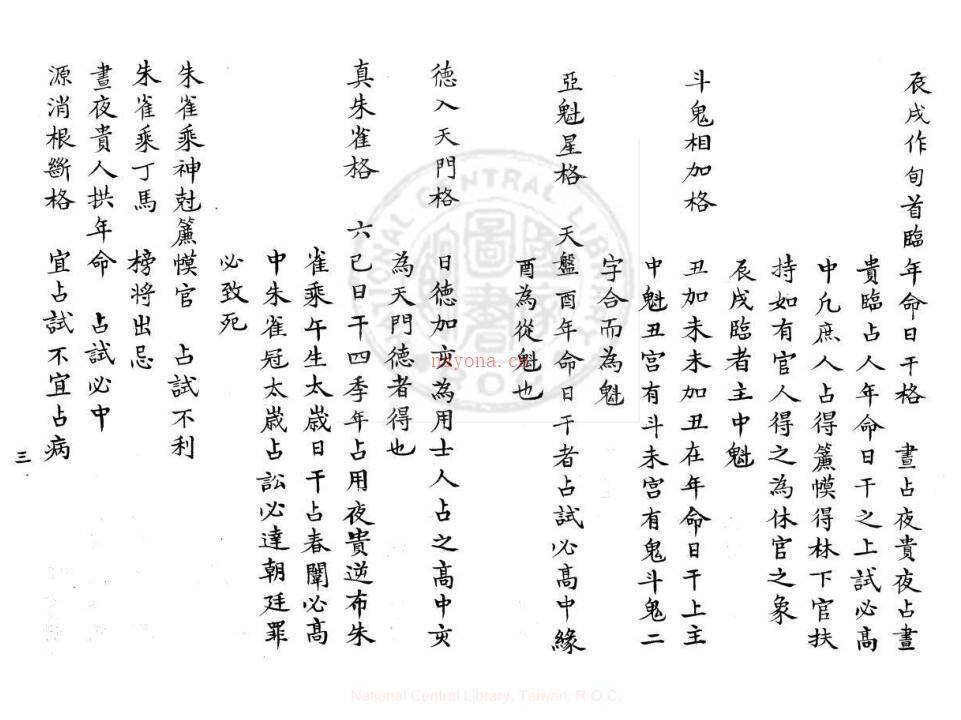 辰戌作旬首臨年命日干格　晝占夜貴夜占晝
貴臨占人年命日干之上試必高
中凡庶人占得簾幙得林下官扶
持如有官人得之為休官之象
辰戌臨者主中魁
斗鬼相加格　丑加未未加丑在年命日干上主
中魁丑宮有斗未宮有鬼斗鬼二
字合而為魁
亞魁星格　天盤酉年命日干者占試必高中緣
酉為從魁也
德入天門格　日德加亥為用士人占之高中亥
為天門德者得也
真朱雀格　六己日干四季年占用夜貴逆布朱
雀乘午生太歲日干占春闈必高
中朱雀冠太歲占訟必達朝廷罪
必致死
朱雀乘神尅簾幙官　占試不利
朱雀乘丁馬　榜將出忌
晝夜貴人拱年命　占試必中
源消根斷格　宜占試不宜占病
三
nayona.cn
NATIONAL CENTRAL LIBRARY
ROC
國家圖書館
National Central Library, Taiwan, R.O.C.